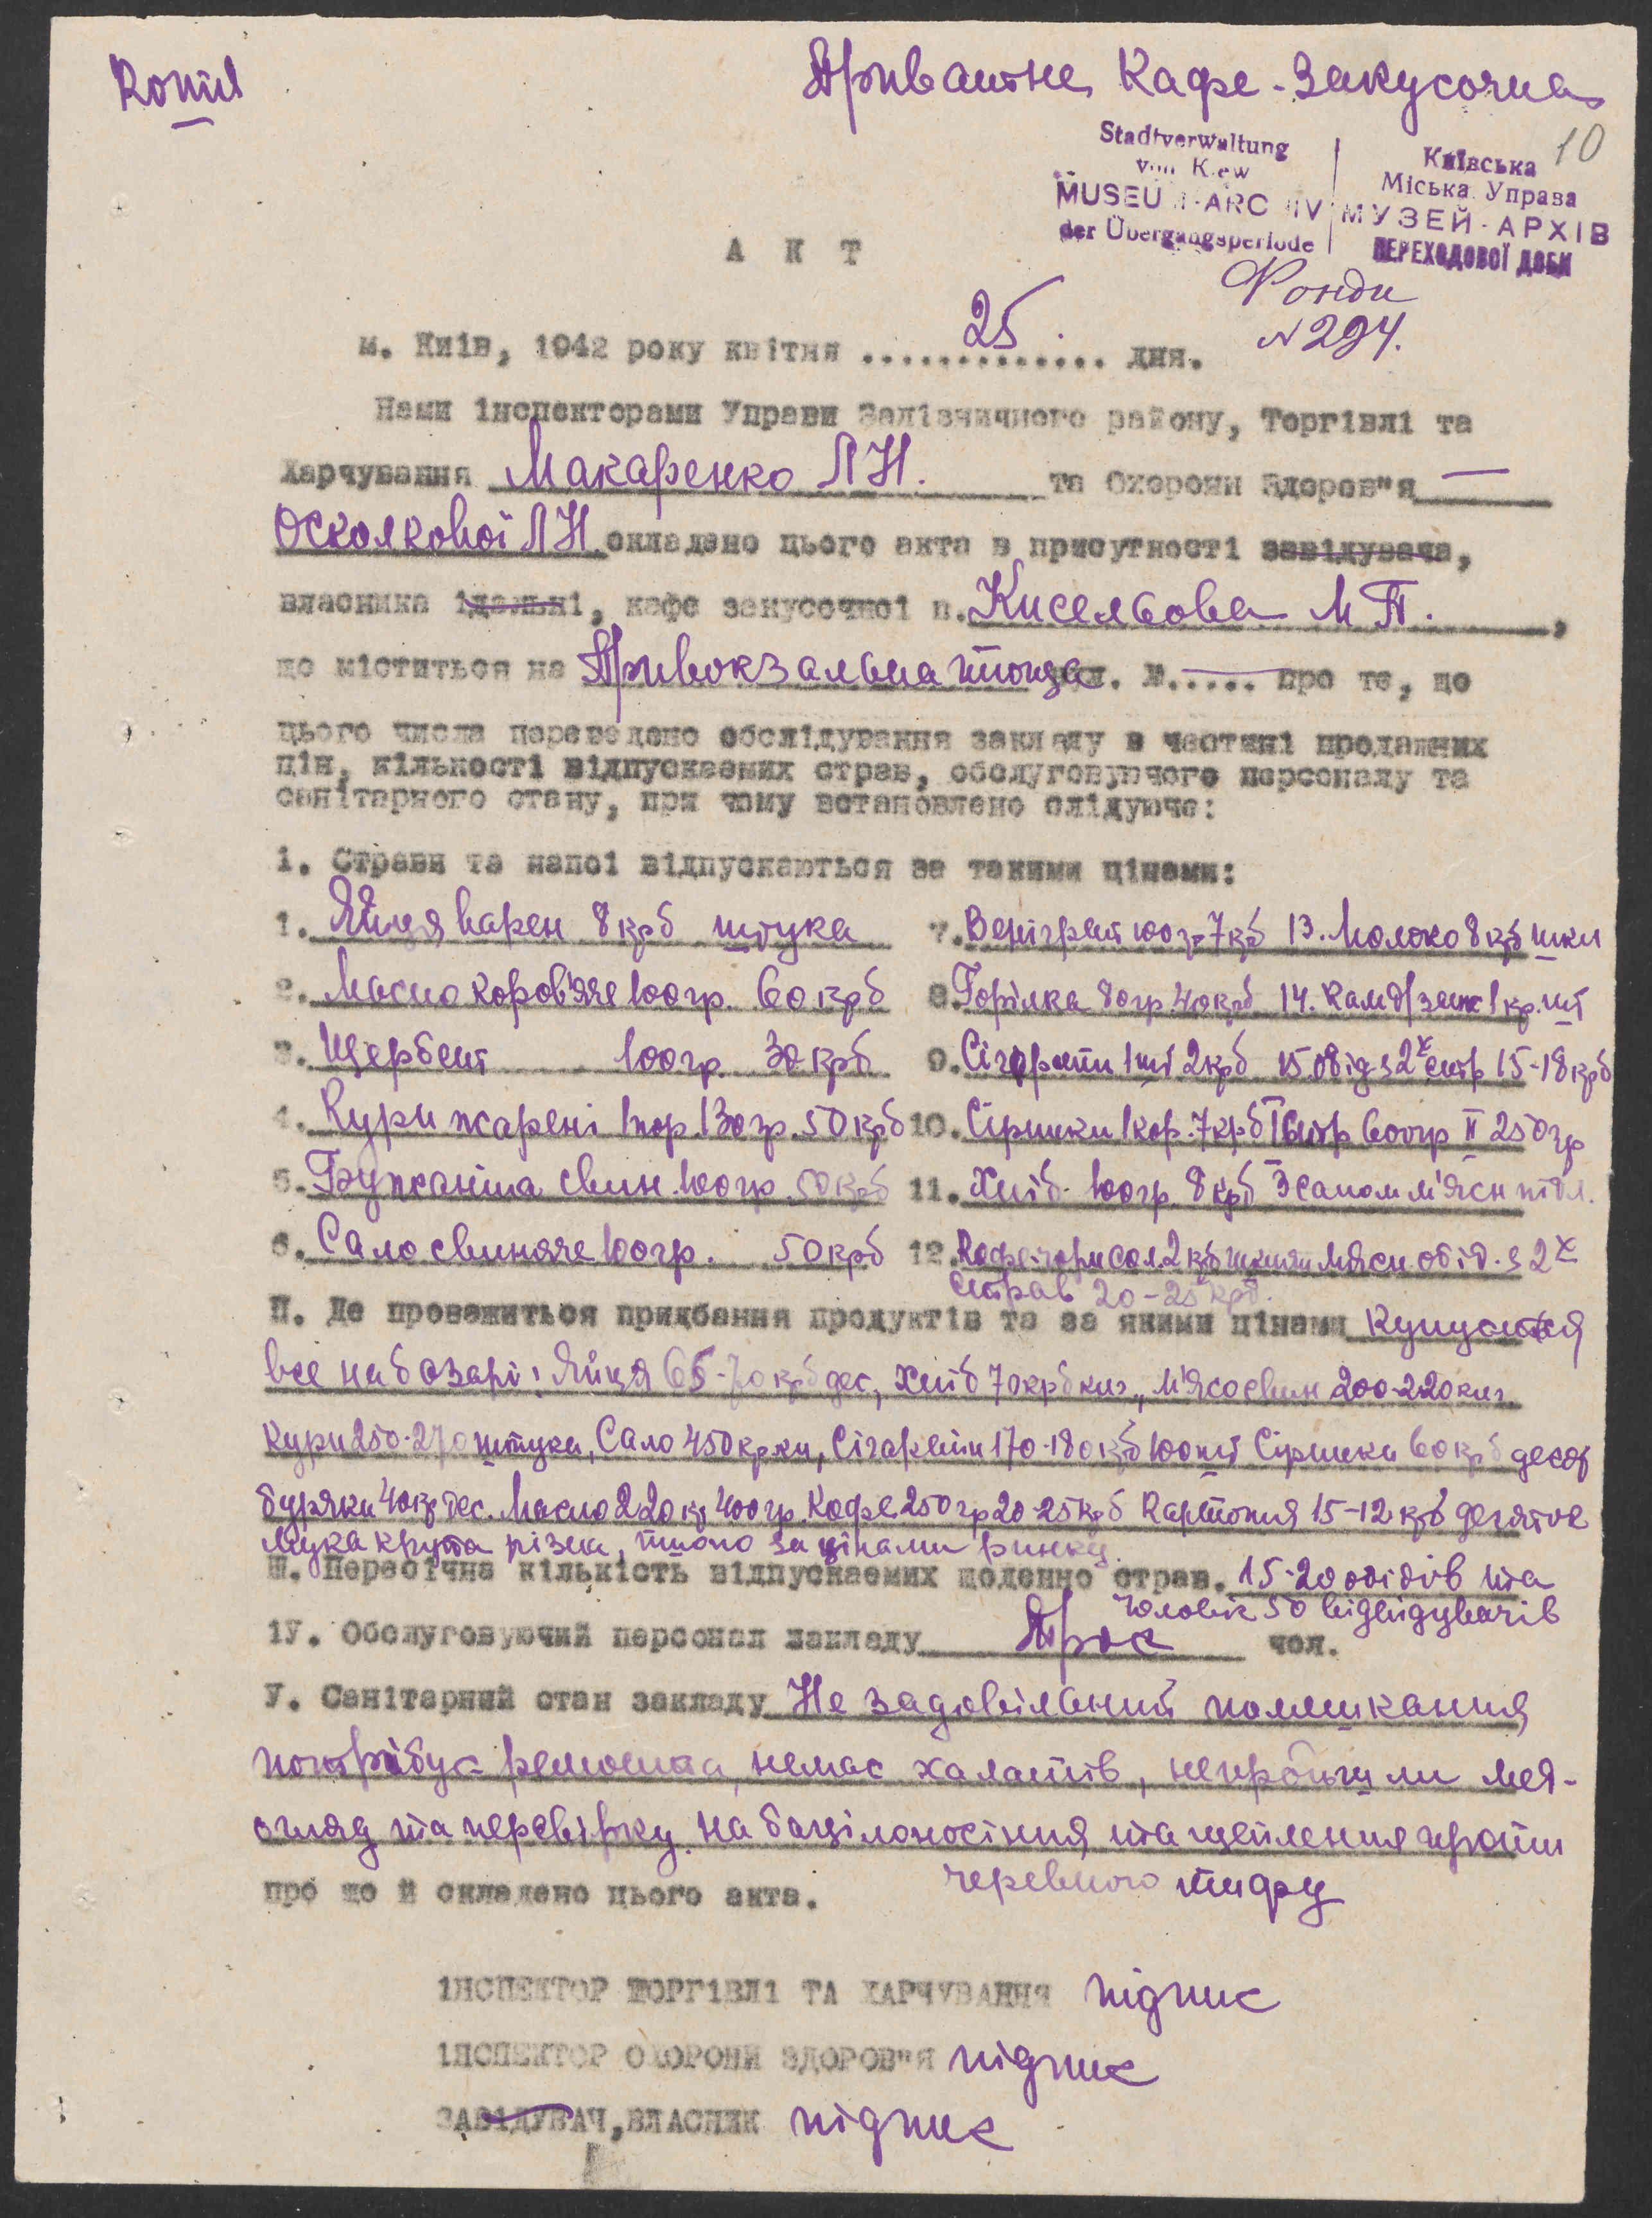 Копія
Приватне Кафе-Закусочна
10
Stadtverwaltung
von Kiew
MUSEUM-ARCHIV
der Übergangsperiode
Київська
Міська Управа
МУЗЕЙ-АРХІВ
ПЕРЕХОДОВОЇ ДОБИ
Фонди
№294.
А К Т
м. Київ, 1942 року квітня ....25.... дня.
Нами інспекторами Управи Залізничного району, Торгівлі та
Харчування Макаренко Л Н. та Охорони Здоров"я —
Осколкової Л Н. складено цього акта в присутності завідувача,
власника їдальні, кафе закусочної п. Кисельова М П.,
що міститься на Привокзальна площа вул. №..... про те, що
цього числа переведено обслідування закладу в частині продажних
цін, кількості відпускаємих страв, обслуговуючого персоналу та
санітарного стану, при чому встановлено слідуюче:
1. Страви та напої відпускаються за такими цінами:
1. Яйця варен 8 крб штука 7. Венігрет 100гр 7 кр 13. Молоко 8 крб шкл
2. Масло коров'яче 100гр. 60 крб 8. Горілка 80гр. 40крб 14. Камд/заж 1 кр. шт
3. Щербет 100гр. 30 крб 9. Сігарети 1шт. 2крб 15. Обід з 2х стр 15-18 крб
4. Кури жарені 1пор. 130гр. 50 крб 10. Сірники 1кор. 7крб I Стр 600гр II 250гр
5. Бужаніна свин. 100гр. 50 крб 11. Хліб 100гр. 8 крб З салом м'ясн підл.
6. Сало свиняче 100гр. 50 крб 12. Кофе чорн сол. 2 крб шклян М'ясн. обід. з 2х
страв 20-25 крб.
П. Де проважиться придбання продуктів та за якими цінами Купується
все на базарі: Яйця 65-70 крб дес, Хліб 70крб кил., М'ясо свин 200-220 кил.
Кури 250-270 штука, Сало 450 кр. кл, Сігарети 170-180 крб 100 шт Сірники 60 крб десят
буряки 40кр дес. Масло 220 кр 400гр. Кофе 250гр 20-25крб Картопля 15-12 крб десяток
Мука крупа різна, тшоно за цінами ринку.
Ш. Пересічна кількість відпускаемих щоденно страв. 15-20 обідів та
чоловік 50 відвідувачів
1У. Обслуговуючий персонал закладу Троє чол.
У. Санітарний стан закладу Не задовільний помешкання
потрібує ремонта, немає халатів, не пройшли мед-
огляд та перевірку на бацілоносіння та щеплення проти
черевного тифу
про що й складено цього акта.
ІНСПЕКТОР ТОРГІВЛІ ТА ХАРЧУВАННЯ підпис
ІНСПЕКТОР ОХОРОНИ ЗДОРОВ"Я підпис
ЗАВІДУВАЧ, ВЛАСНИК підпис